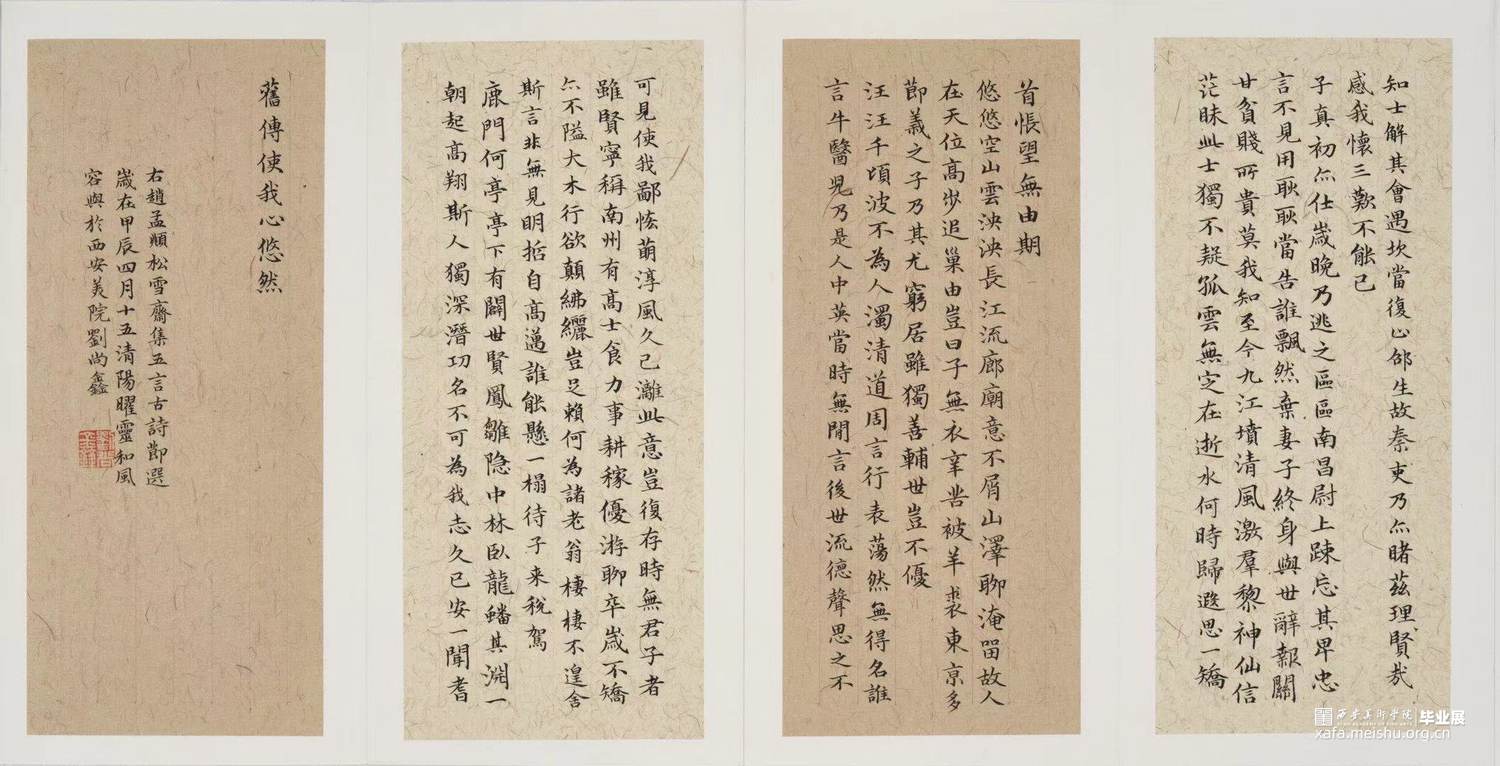 知士解其會遇坎當復止邵生故秦吏乃亦睹茲理賢哉
感我懷三歎不能已
子真初亦仕歲晚乃逃之區區南昌尉上疎忘其卑忠
言不見用耿耿當告誰飄然棄妻子終身與世辭報關
甘貧賤所貴莫我知至今九江墳清風激羣黎神仙信
茫昧此士獨不疑孤雲無定在逝水何時歸遐思一矯
首悵望無由期
悠悠空山雲泱泱長江流廊廟意不屑山澤聊淹留故人
在天位高步追巢由豈曰子無衣辛苦被羊裘東京多
節義之子乃其尤窮居雖獨善輔世豈不優
汪汪千頃波不為人濁清道周言行表蕩然無得名誰
言牛醫兒乃是人中英當時無閒言後世流德聲思之不
可見使我鄙悋萌淳風久已漓此意豈復存時無君子者
雖賢寧稱南州有高士食力事耕稼優游聊卒歲不矯
亦不隘大木行欲顛紼纚豈足賴何為諸老翁棲棲不遑舍
斯言非無見明哲自高邁誰能懸一榻待子来稅駕
鹿門何亭亭下有闢世賢鳳雛隐中林臥龍蟠其淵一
朝起高翔斯人獨深潛功名不可為我志久已安一聞耆
舊傳使我心悠然
右趙孟頫松雪齋集五言古詩節選
歲在甲辰四月十五清陽曜靈和風
容與於西安美院劉尚鑫
西安美術學院 毕业展
xafa.meishu.org.cn